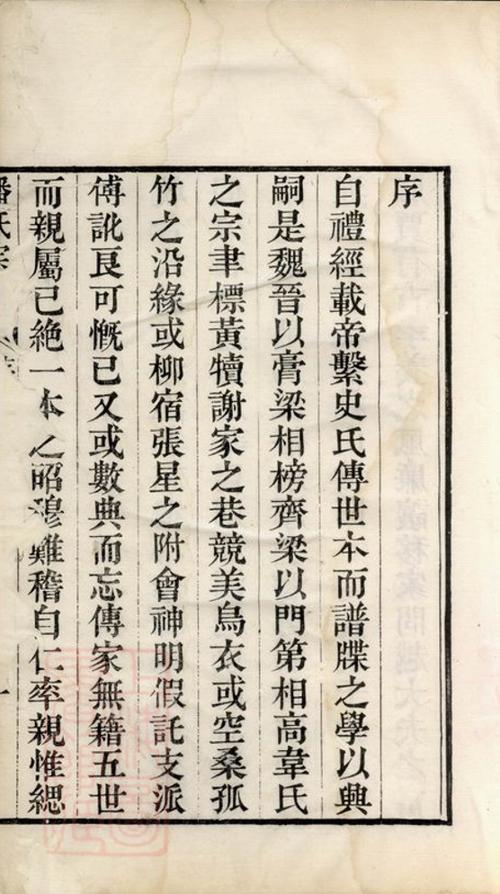 序
自禮經載帝繫史氏傳世本而譜牒之學以興
嗣是魏晉以膏梁相榜齊梁以門第相高韋氏
之宗聿標黃犢謝家之巷競美烏衣或空桑孤
竹之沿緣或柳宿張星之附會神明假託支派
傳訛良可慨已又或數典而忘傳家無籍五世
而親屬已絶一本之昭穆難稽自仁率親惟緦
潘氏宗
序
一